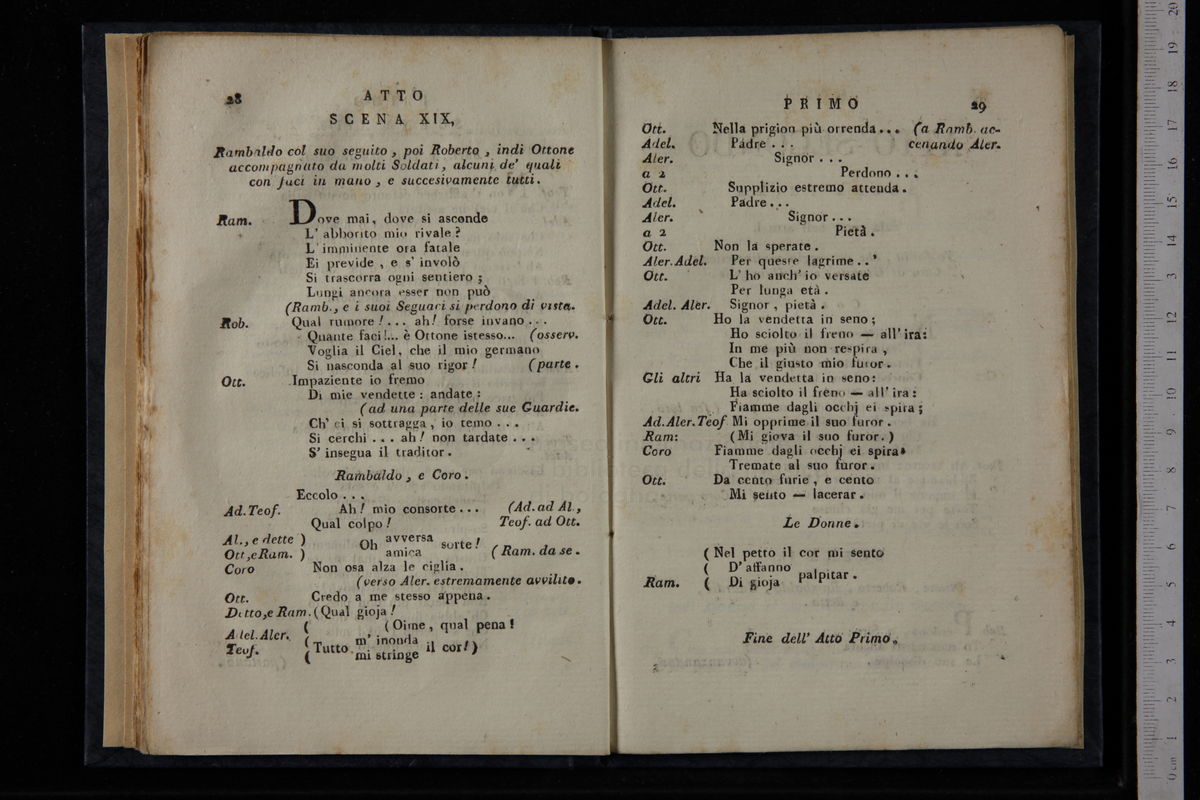 28
ATTO
SCENA XIX,
Rambaldo col suo seguito, poi Roberto, indi Ottone
accompagnato da molti Soldati, alcuni de' quali
con faci in mano, e succesivamente tutti.
Ram. Dove mai, dove si asconde
L' abborito mio rivale?
L' imminente ora fatale
Ei previde, e s' involò
Si trascorra ogni sentiero;
Lungi ancora esser non può
(Ramb., e i suoi Seguaci si perdono di vista.
Rob. Qual rumore!... ah! forse invano...
Quante faci!... è Ottone istesso... (osserv.
Voglia il Ciel, che il mio germano
Si nasconda al suo rigor! (parte.
Ott. Impaziente io fremo
Di mie vendette: andate:
(ad una parte delle sue Guardie.
Ch' ei si sottragga, io temo...
Si cerchi... ah! non tardate...
S' insegua il traditor.
Rambaldo, e Coro.
Eccolo...
Ad. Teof. Ah! mio consorte... (Ad. ad Al.,
Qual colpo! Teof. ad Ott.
Al., e dette ) Oh avversa sorte!
Ott., e Ram. ) amica (Ram. da se.
Coro Non osa alza le ciglia.
(verso Aler. estremamente avvilito.
Ott. Credo a me stesso appena.
Detto, e Ram. (Qual gioja!
( (Oime, qual pena!
Adel. Aler. ( m' inonda
Teof. (Tutto mi stringe il cor!)
PRIMO
29
Ott. Nella prigion più orrenda... (a Ramb. ac-
Adel. Padre... cenando Aler.
Aler. Signor...
a 2 Perdono...
Ott. Supplizio estremo attenda.
Adel. Padre...
Aler. Signor...
a 2 Pietà.
Ott. Non la sperate.
Aler. Adel. Per queste lagrime..'
Ott. L' ho anch' io versate
Per lunga età.
Adel. Aler. Signor, pietà.
Ott. Ho la vendetta in seno;
Ho sciolto il freno — all' ira:
In me più non respira,
Che il giusto mio furor.
Gli altri Ha la vendetta in seno:
Ha sciolto il freno — all' ira:
Fiamme dagli occhj ei spira;
Ad. Aler. Teof Mi opprime il suo furor.
Ram: (Mi giova il suo furor.)
Coro Fiamme dagli occhj ei spira
Tremate al suo furor.
Ott. Da cento furie, e cento
Mi sento — lacerar.
Le Donne.
( Nel petto il cor mi sento
( D' affanno
Ram. ( Di gioja palpitar.
Fine dell' Atto Primo.